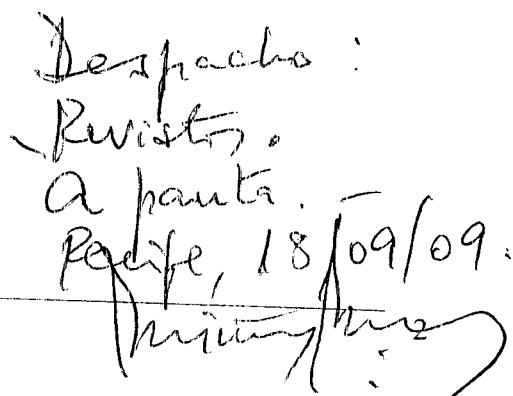 Despacho:
Revistos.
A pauta.
Recife, 18/09/09.